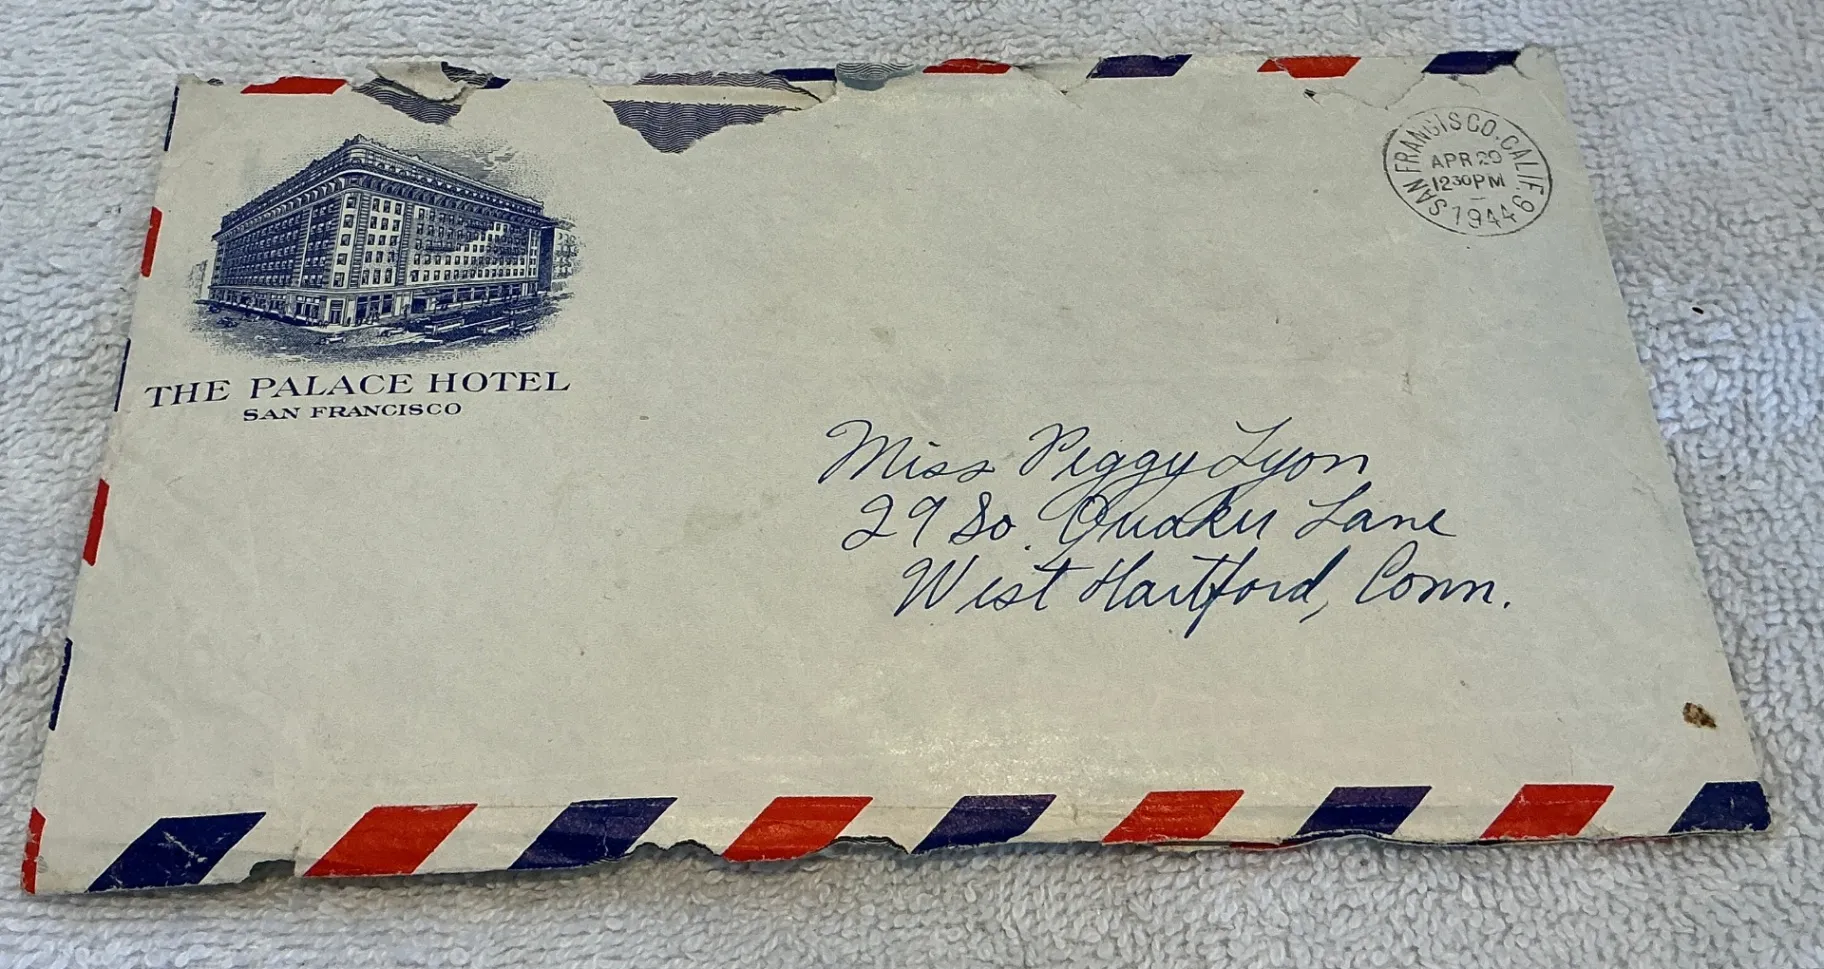 THE PALACE HOTEL
SAN FRANCISCO
SAN FRANCISCO. CALIF. 6
APR 20
1230PM
1944
Miss Peggy Lyon
29 So. Quaker Lane
West Hartford, Conn.